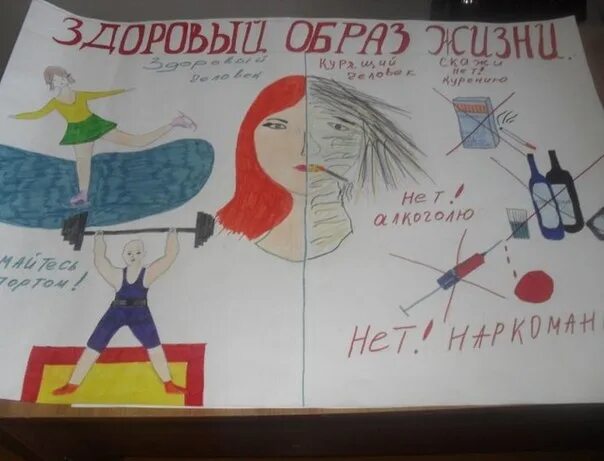 ЗДОРОВЫЙ ОБРАЗ ЖИЗНИ.
Здоровый
человек
Курящий
человек
Скажи
нет!
курению
Нет!
алкоголю
майтесь
портом!
Нет! НАРКОМАН